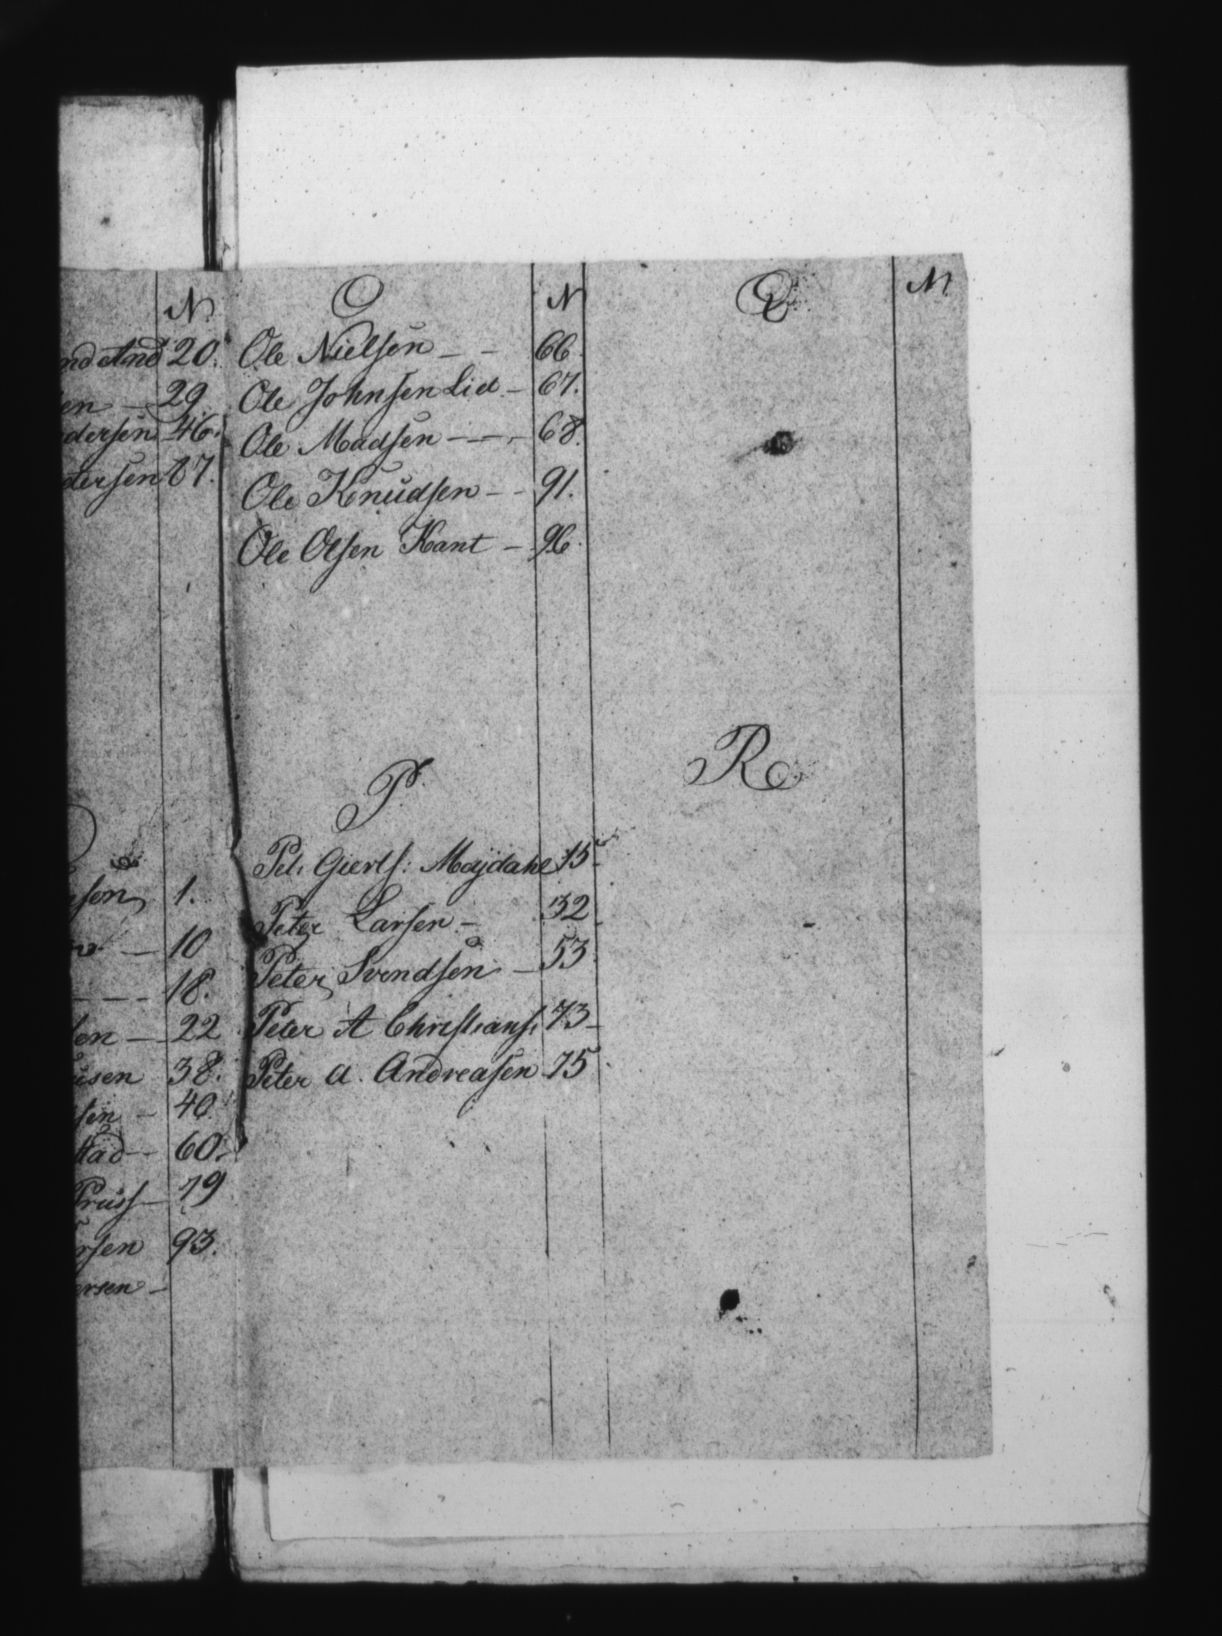 N.
nd And 20.
en — 29
dersen 46.
dersen 87.
sen, 1.
— 10
— — — 18.
sen — 22
usen 38.
sen — 40
stad — 60.
Pruss — 79
rsen 93.
ersen —
O N
Ole Nielsen — — 66.
Ole Johnsen Lid — 67.
Ole Madsen — — — 68.
Ole Knudsen — — 91.
Ole Olsen Kant — 96.
P.
Pet. Gierts: Majdahl 15
Peter Larsen — 32
Peter Svendsen — 53.
Peter A Christians. 73
Peter A. Andreasen 75
Q N
R